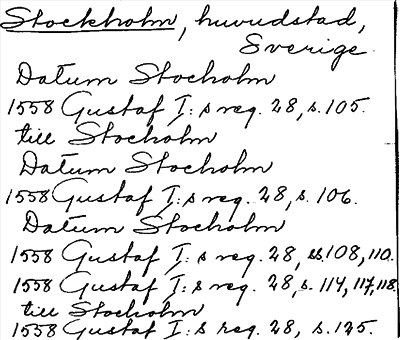 Stockholm, huvudstad,
Sverige.
Datum Stocholm
1558 Gustaf I: s reg. 28, s. 105.
till Stocholm
Datum Stocholm
1558 Gustaf I: s reg. 28, s. 106.
Datum Stocholm
1558 Gustaf I: s reg. 28, ss. 108, 110.
1558 Gustaf I: s reg. 28, s. 114, 117, 118
till Stocholm
1558 Gustaf I: s reg. 28, s. 125.